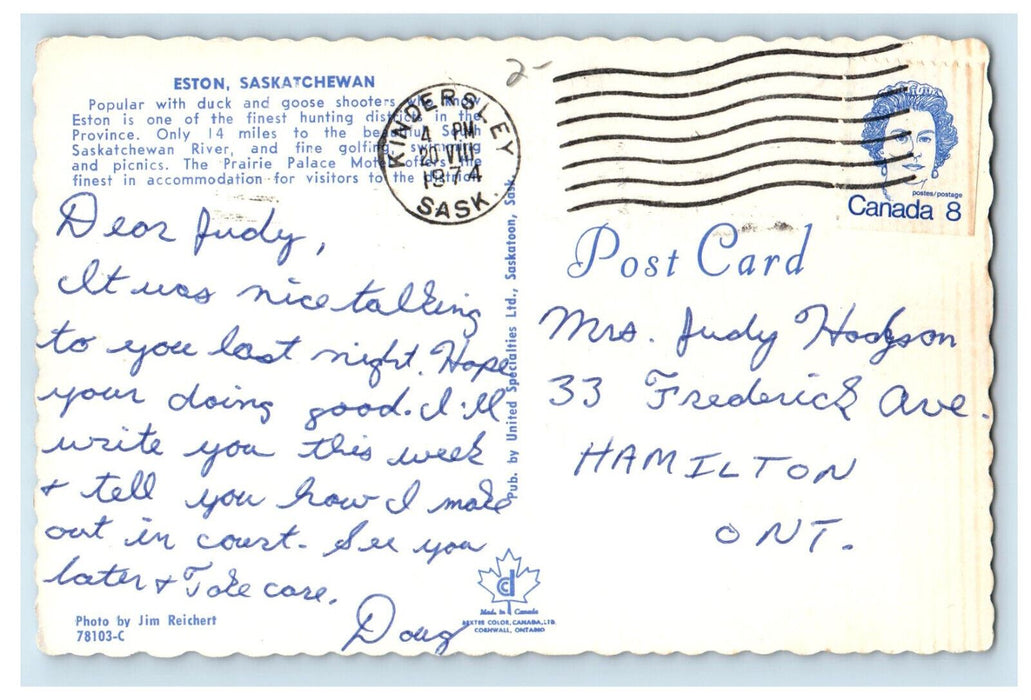 ESTON, SASKATCHEWAN
Popular with duck and goose shooters who know
Eston is one of the finest hunting districts in the
Province. Only 14 miles to the beautiful South
Saskatchewan River, and fine golfing, swimming
and picnics. The Prairie Palace Motel offers the
finest in accommodation for visitors to the district.
2-
KINDERSLEY
4 PM
20 VIII
1974
SASK.
postes/postage
Canada 8
Post Card
Dear Judy,
It was nice talking
to you last night. Hope
your doing good. I'll
write you this week
+ tell you how I make
out in court. See you
later + Take care.
Doug
Pub. by United Specialties Ltd., Saskatoon, Sask.
Mrs. Judy Hodgson
33 Frederick Ave.
HAMILTON
ONT.
Photo by Jim Reichert
78103-C
cd
Made in Canada
DEXTER COLOR, CANADA, LTD.
CORNWALL, ONTARIO